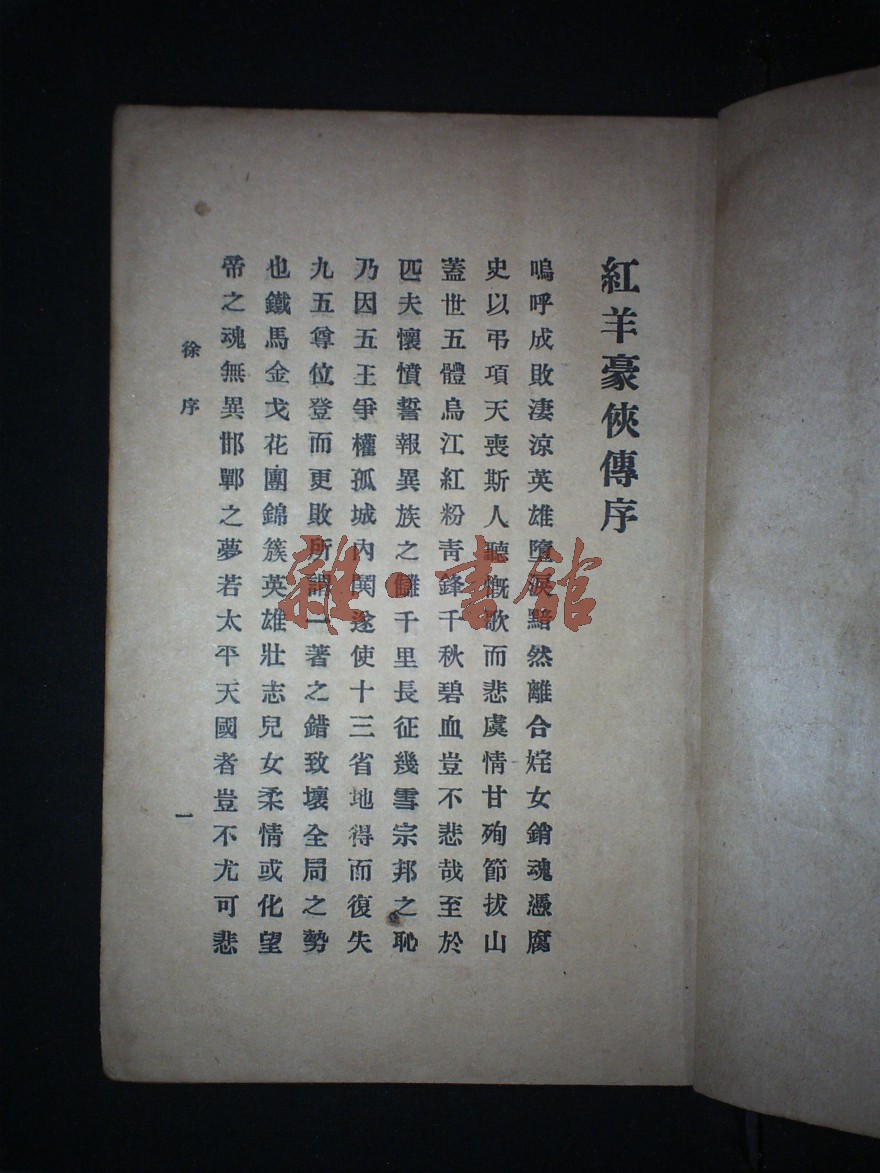 紅羊豪俠傳序
嗚呼成敗淒涼英雄墮淚黯然離合姹女銷魂憑腐
史以弔項天喪斯人聽慨歌而悲虞情甘殉節拔山
蓋世五體烏江紅粉靑鋒千秋碧血豈不悲哉至於
匹夫懷憤誓報異族之讎千里長征幾雪宗邦之恥
乃因五王爭權孤城內鬨遂使十三省地得而復失
九五尊位登而更敗所謂一著之錯致壞全局之勢
也鐵馬金戈花團錦簇英雄壯志兒女柔情或化望
帝之魂無異邯鄲之夢若太平天國者豈不尤可悲
徐序
一
雜·書館